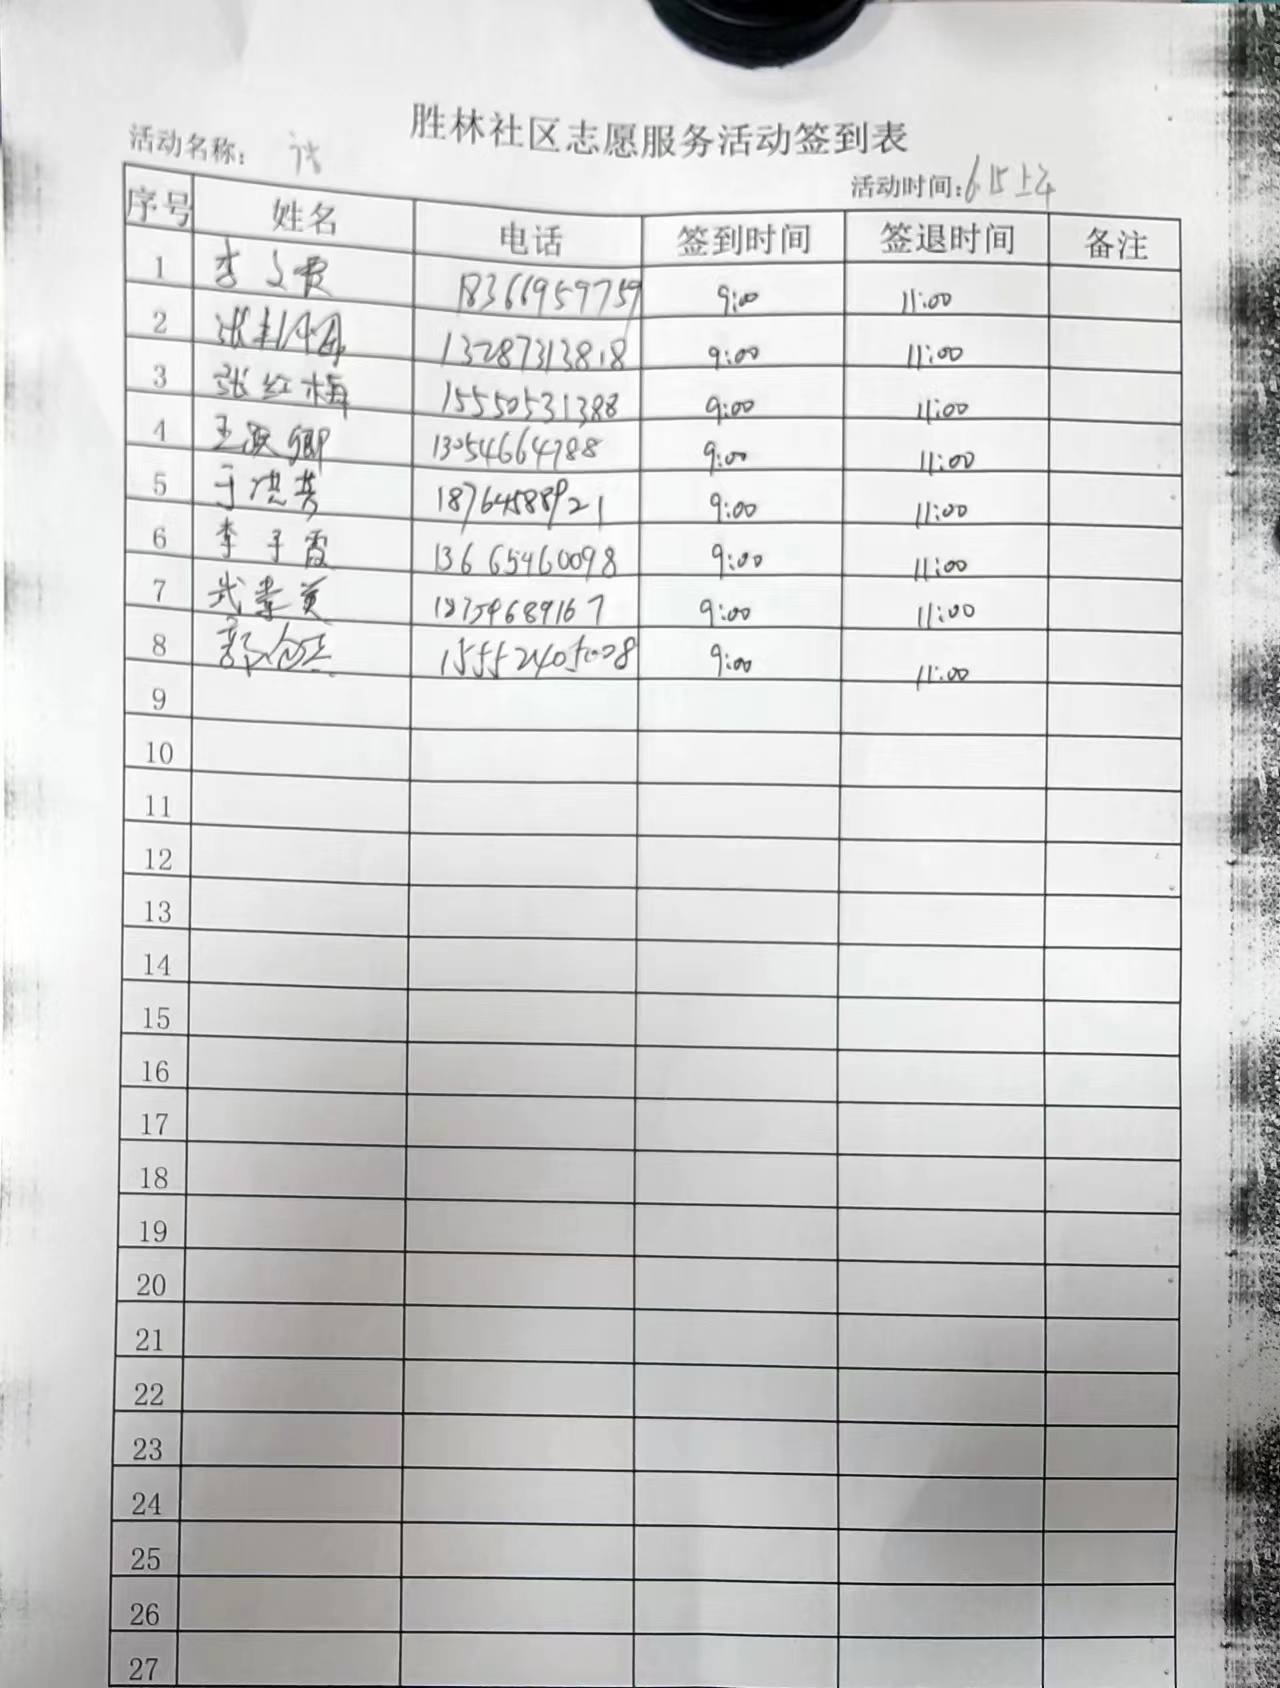 胜林社区志愿服务活动签到表
活动名称：
活动时间：6.15上午
序号 姓名 电话 签到时间 签退时间 备注
1 李文贵 18366959759 9:00 11:00
2 张 13287313818 9:00 11:00
3 张红梅 15550531388 9:00 11:00
4 王 卿 13054664788 9:00 11:00
5 于洪芳 18764588921 9:00 11:00
6 李子霞 13665460098 9:00 11:00
7 武 英 9:00 11:00
8 郭 15552405008 9:00 11:00
9
10
11
12
13
14
15
16
17
18
19
20
21
22
23
24
25
26
27